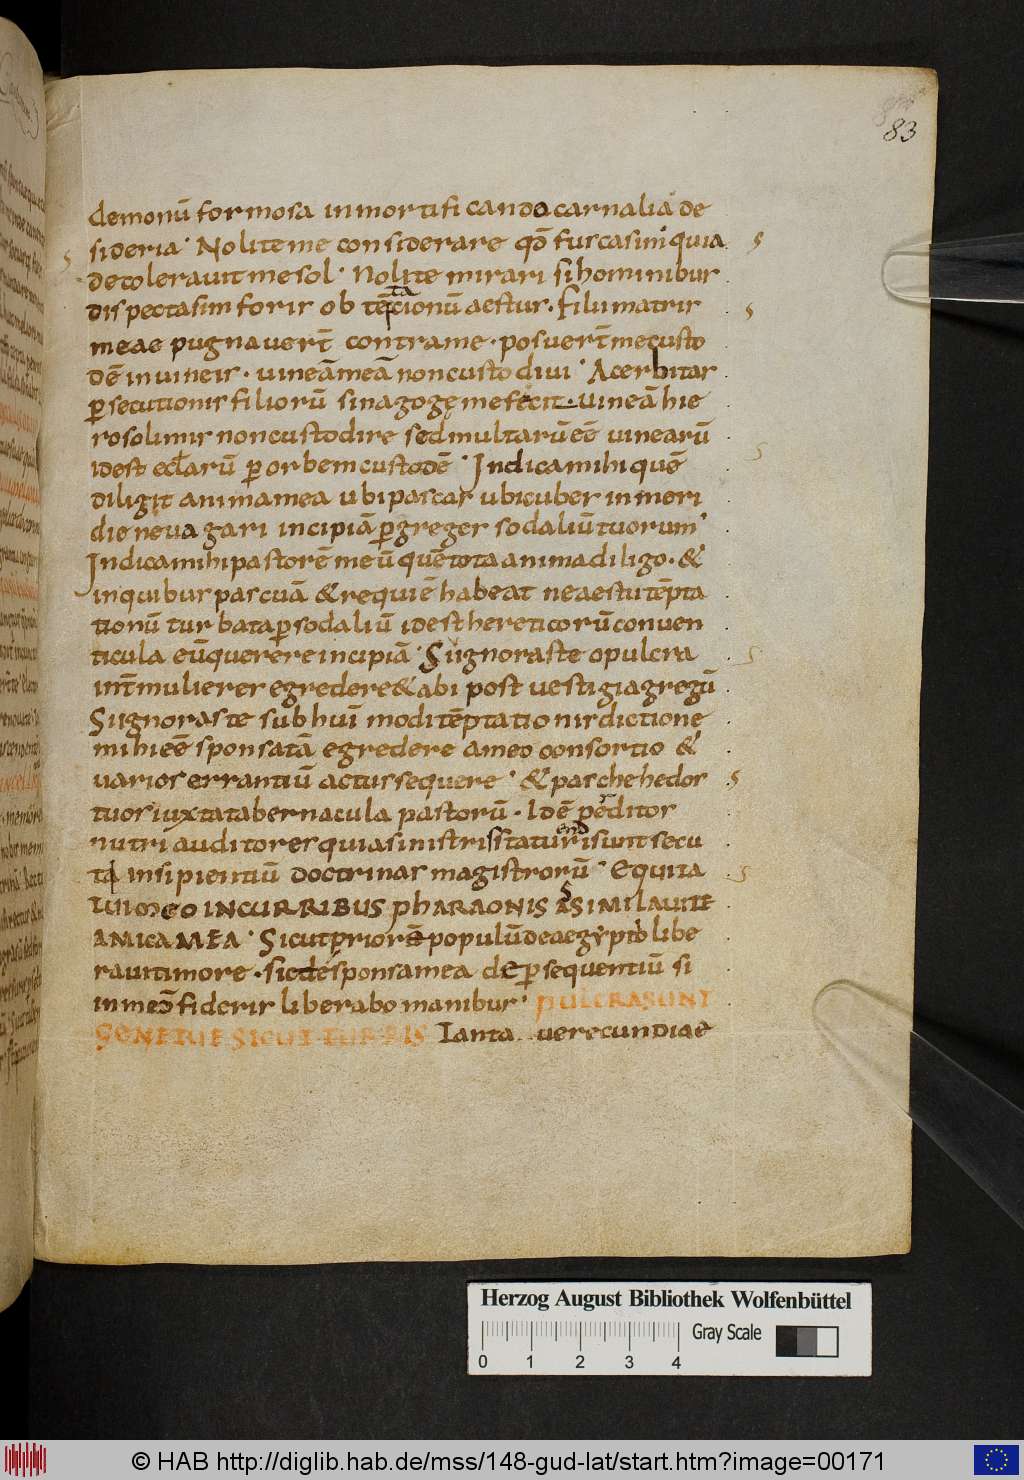 83
demonū formosa inmortificando carnalia de
sideria· Nolite me considerare qđ fuscasim quia
decoloravit me sol· Nolite mirari si hominibus
dispectasim foris ob tēptacionū aestus· filii matris
meae pugnaverт̄ contrame· posuerт̄ me custo
dē in vineis· vineā meā non custodivi· Acerbitas
p̱secutionis filiorū sinagogę me fecit vineā hie
rosolimis non custodire sed multarū eē vinearū
idest eccƚarū p̱ orbem custodē· Indica mihi quē
diligit anima mea ubi pascas ubi cubes in meri
die ne vagari incipiā p̱ greges sodaliū tuorum·
Indica mihi pastorē meū quē tota anima diligo· &
in quibus pascuā & requiē habeat ne aestu tēpta
tionū turbata p̱ sodaliū idest hereticorū conven
ticula eū querere incipiā· Si ignoras te o pulcra
int̄ mulieres egredere & abi post vestigia gregū
Si ignoras te sub huī modi tēptationis dictione
mihi eē sponsatā egredere a meo consortio &
varios errantiū actus sequere· & pasce hedos
tuos iuxta tabernacula pastorū· Idē perditos
nutri auditores quia sinistris statuendi sunt secu
ta insipientiū doctrinas magistrorū· Equita
tui meo IN CURRIBUS PHARAONIS ASSIMILAVI TE
AMICA MEA· Sicut priorē populū de aegypto libe
ravi timore· sic de sponsa mea de p̱sequentiū si
in meo fideris liberabo manibus· PULCRA SUNT
GENE TUE SICUT TURRIS Tanta verecundiae
Herzog August Bibliothek Wolfenbüttel
Gray Scale
0 1 2 3 4
© HAB http://diglib.hab.de/mss/148-gud-lat/start.htm?image=00171